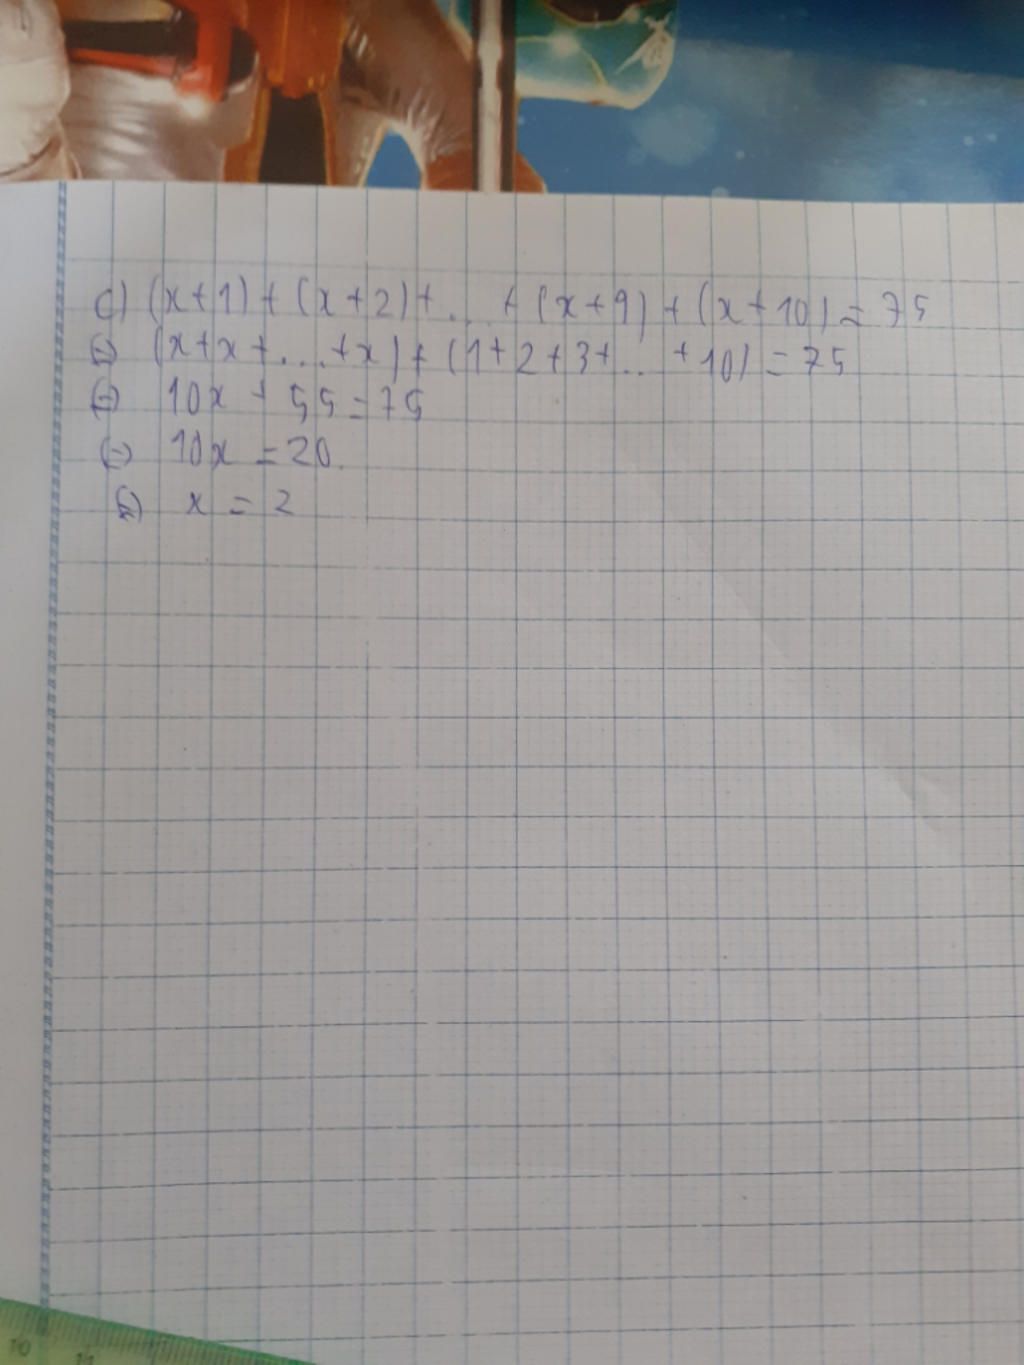 c) (x+1) + (x+2)+... + (x+9) + (x+10) = 75
⇔ (x+x+....+x) + (1+2+3+... +10) = 75
⇔ 10x + 55 = 75
⇔ 10x = 20
⇔ x = 2
10
11